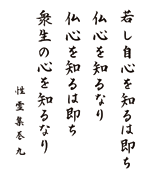 若し自心を知るは即ち
仏心を知るなり
仏心を知るは即ち
衆生の心を知るなり
性霊集巻九